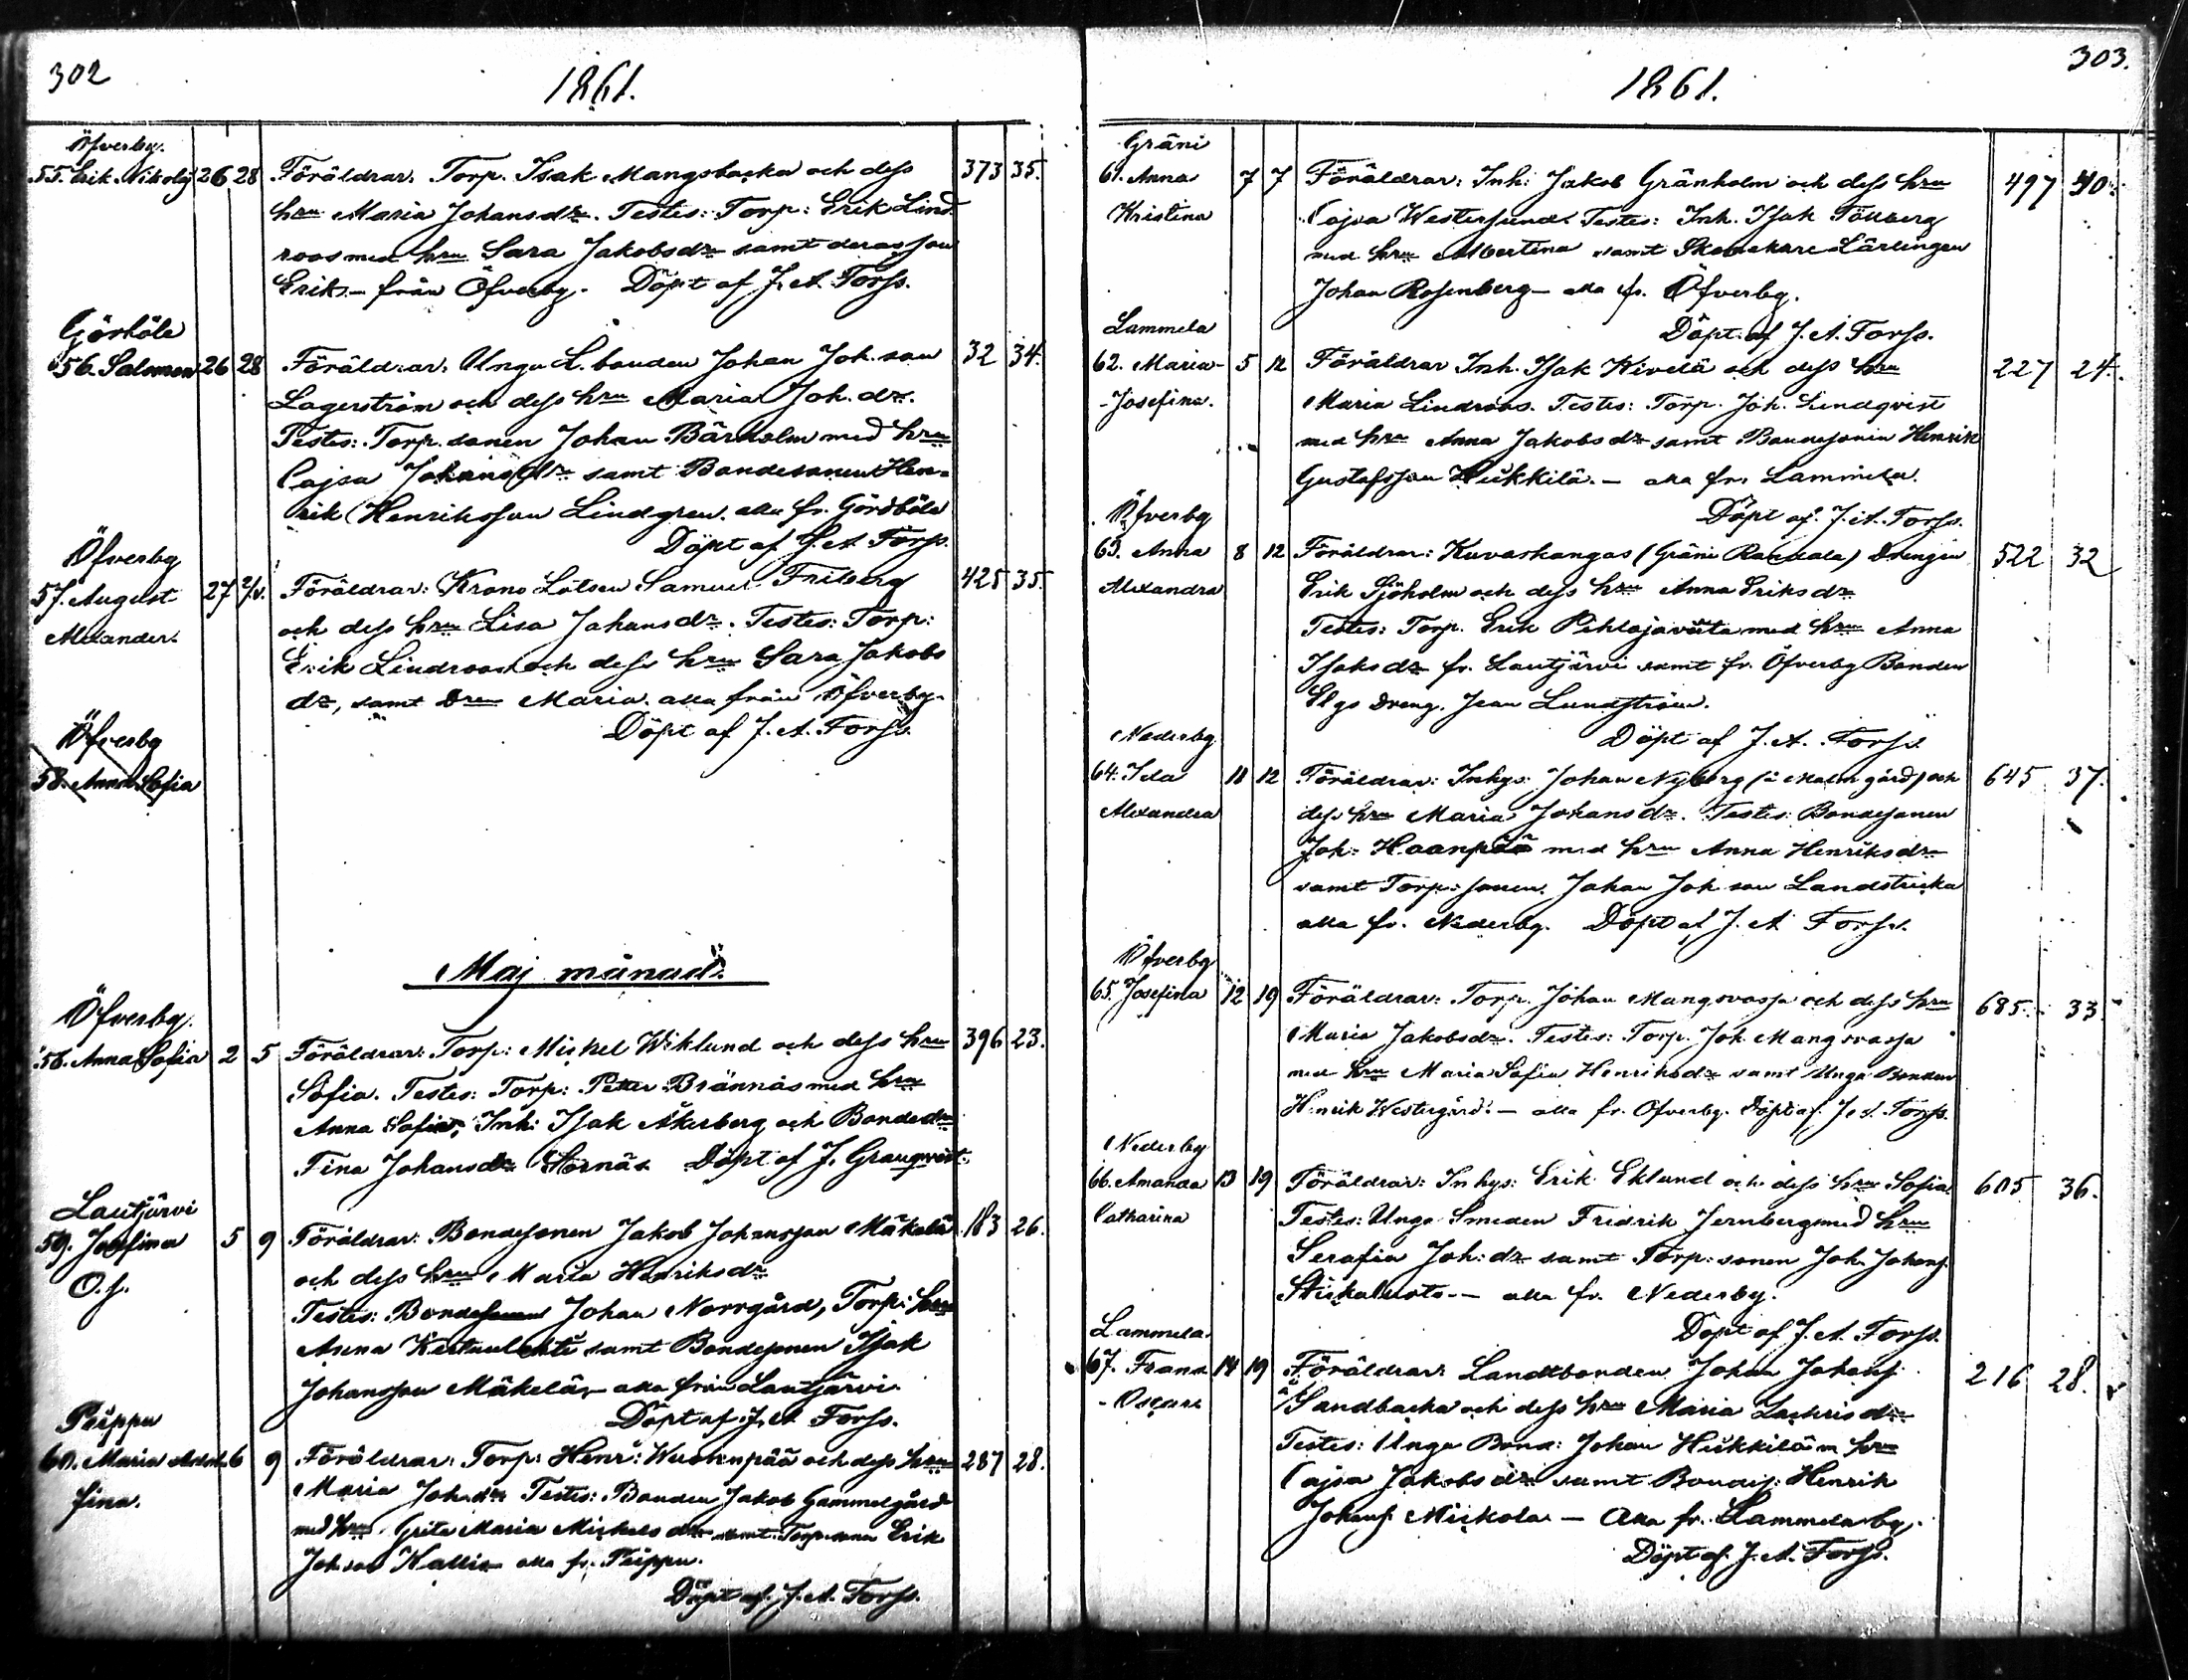 302
1861.
Öfverby.
55. Erik Nikolaj 26 28 Föräldrar. Torp. Isak Mangsbacka och dess 373 35.
hru Maria Johansdr. Testes: Torp: Erik Lind
roos med hru Sara Jakobsdr samt deras son
Erik – från Öfverby. Döpt af J. A. Forss.
Gördböle
56. Salomon 26 28 Föräldrar, Unga L. bonden Johan Joh. son 32 34.
Lagerström och dess hru Maria Joh. dr.
Testes: Torp. sonen Johan Bärholm med hru
Cajsa Johansdr samt Bondesonen Hen-
rik Henriksson Lindgren. alla fr. Gördböle
Döpt af J. A. Forss.
Öfverby
57. August 27 2/V. Föräldrar: Krono Lotsen Samuel Friberg 425 35.
Alexander. och dess hru Lisa Johansdr. Testes: Torp:
Erik Lindroos och dess hru Sara Jakobs
dr, samt Drn Maria. alla från Öfverby.
Döpt af J. A. Forss.
Öfverby
58. Anna Sofia
Maj månad.
Öfverby.
58. Anna Sofia 2 5 Föräldrar: Torp: Mickel Wiklund och dess hru 396 23.
Sofia. Testes: Torp: Petter Brännäs med hru
Anna Sofia, Inh: Isak Åkerberg och Bondedr
Tina Johansdr Stornäs. Döpt af J. Granqvist.
Lautjärvi
59. Josefina 5 9 Föräldrar: Bondesonen Jakob Johansson Mäkelä 183 26.
O. f. och dess hru Maria Henriksdr
Testes: Bondesonen Johan Norrgård, Torp: hru
Anna samt Bondesonen Isak
Johansson Mäkelä, alla från Lautjärvi.
Döpt af J. A. Forss.
Peippu
60. Maria 6 9 Föräldrar: Torp: Henr: Wuorenpää och dess hru 287 28.
fina. Maria Joh. dr Testes: Bonden Jakob Gammelgård
med hru Greta Maria Mickels dr samt Torp. sonen Erik
Joh. son Kallio alla fr. Peippu.
Döpt af. J. A. Forss.
303.
1861.
Gräni
61. Anna 7 7 Föräldrar: Inh: Jakob Gränholm och dess hru 497 40.
Kristina Cajsa Westersund. Testes: Inh. Isak
med hru Albertina samt Skomakare Lärlingen
Johan Rosenberg – alla fr. Öfverby.
Döpt af J. A. Forss.
Lammela
62. Maria- 5 12 Föräldrar Inh. Isak Kivelä och dess hru 227 24.
-Josefina. Maria Lindroos. Testes: Torp. Joh. Lundqvist
med hru Anna Jakobsdr samt Bondesonen Henrik
Gustafsson Heikkilä. – alla fr. Lammela.
Döpt af. J. A. Forss.
Öfverby
63. Anna 8 12 Föräldrar: Kuvaskangas (Gräni ) Drengen 522 32
Alexandra Erik Sjöholm och dess hru Anna Eriksdr
Testes: Torp. Erik Pihlajaviita med hru Anna
Isaksdr fr. Lautjärvi samt fr. Öfverby Bonden
Elgs Dreng. Jean Lundström.
Döpt af J. A. Forss.
Nederby
64. Ida 11 12 Föräldrar: Inhys: Johan Nyberg (å Malmgård) och 645 37.
Alexandra dess hru Maria Johansdr. Testes: Bondesonen
Joh: Haanpää med hru Anna Henriksdr
samt Torp: sonen. Johan Joh son Landstycka
alla fr. Nederby. Döpt af J. A. Forss.
Öfverby
65. Josefina 12 19 Föräldrar: Torp. Johan Mangsvassa och dess hru 685. 33.
Maria Jakobsdr. Testes: Torp. Joh. Mangsvassa
med hru Maria Sofia Henriksdr samt Unga Bonden
Henrik Westergård. – alla fr. Öfverby. Döpt af. J. A. Forss.
Nederby
66. Amanda 13 19 Föräldrar: Inhys: Erik Eklund och dess hru Sofia 605 36.
Catharina Testes: Unga Smeden Fridrik Jernberg med hru
Serafia Joh: dr samt Torp: sonen Joh. Johans.
– alla fr. Nederby.
Döpt af J. A. Forss.
Lammela
67. Frans 14 19 Föräldrar: Landtbonden Johan Johans. 216 28.
- Oscar å/ Sandbacka och dess hru Maria Zachrisdr
Testes: Unga Bond: Johan Heikkilä m hru
Cajsa Jakobsdr samt Bondes: Henrik
Johans. Mickola – Alla fr. Lammela by.
Döpt af. J. A. Forss.